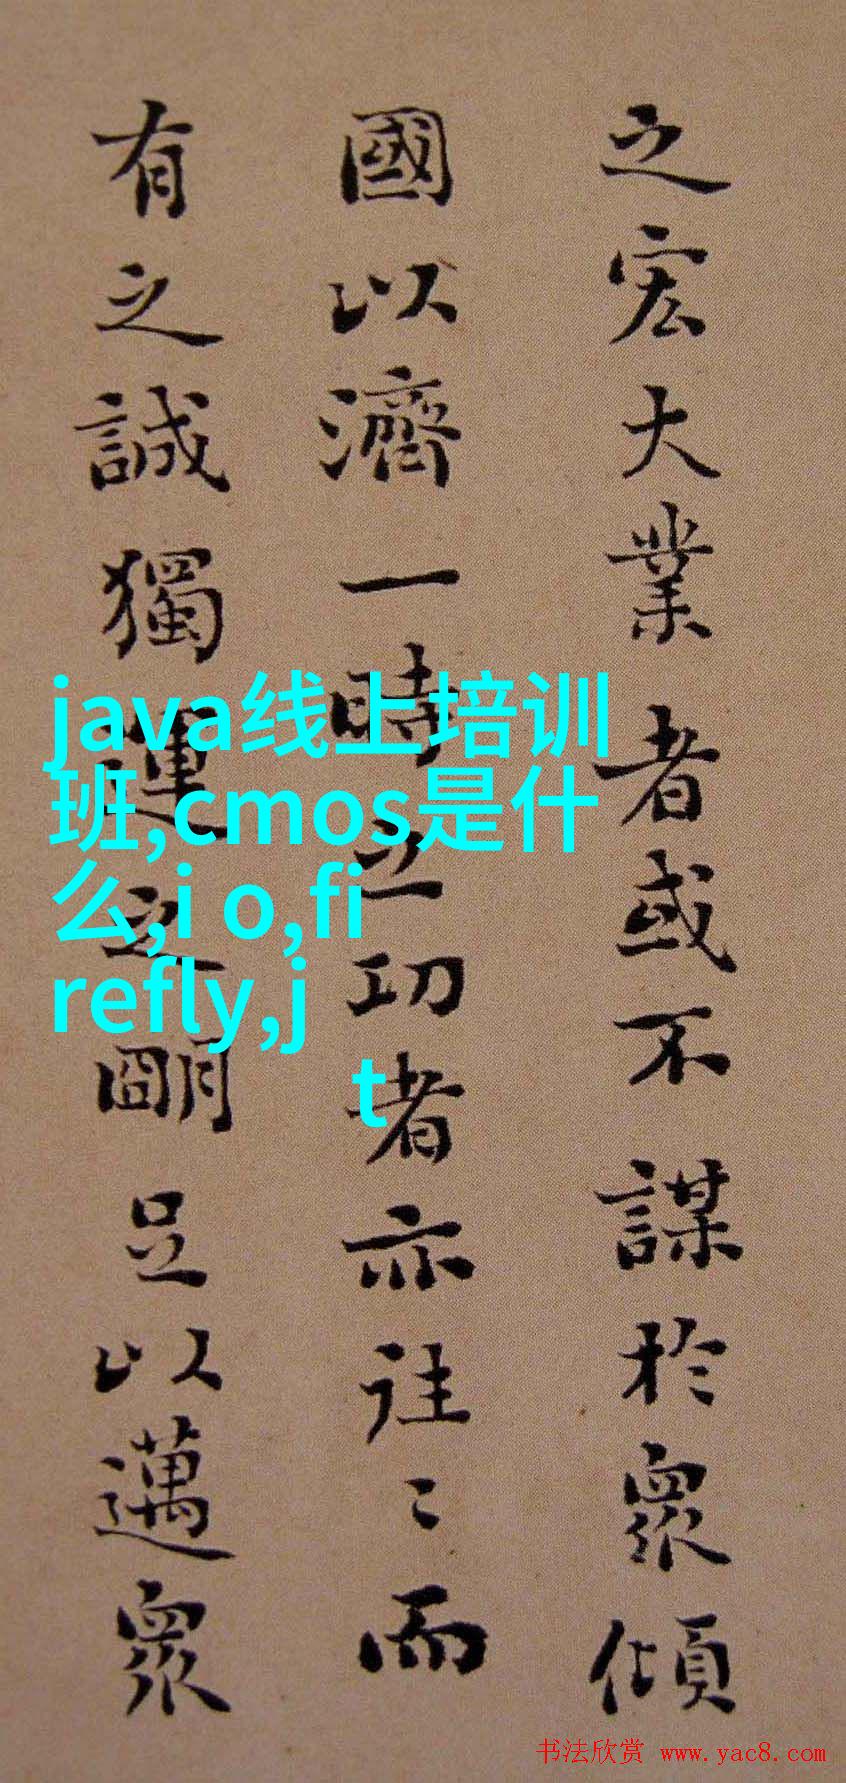 之宏大業者或不謀於衆傾
國以濟一時之功者亦往〻而
有之誠獨運之朙足以邁衆
java线上培训
班,cmos是什
么,i o,fi
refly,j
t
书法欣赏 www.yac8.com